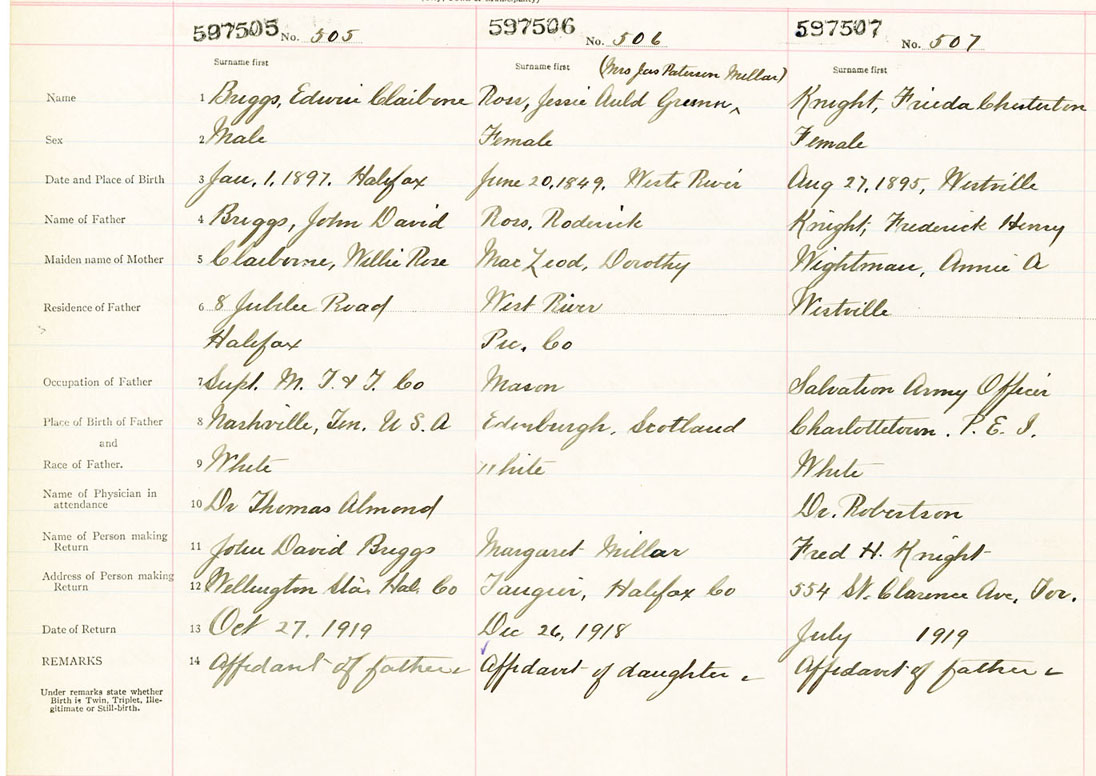 597505 No. 505
Surname first
597506 No. 506
Surname first (Mrs Jas Paterson Millar)
597507 No. 507
Surname first
Name 1 Briggs, Edwin Claiborne Ross, Jessie Auld Knight, Frieda Chesterton
Sex 2 Male Female Female
Date and Place of Birth 3 Jan. 1. 1897. Halifax June 20, 1849. West River Aug 27, 1895, Westville
Name of Father 4 Briggs, John David Ross, Roderick Knight, Frederick Henry
Maiden name of Mother 5 Claiborne, Willie Rose MacLeod, Dorothy Wightman, Annie A
Residence of Father 6 8 Jubilee Road West River Westville
Halifax Pic. Co
Occupation of Father 7 Supt. M. T. & T. Co Mason Salvation Army Officer
Place of Birth of Father 8 Nashville, Ten. U S. A Edinburgh, Scotland Charlottetown. P. E. I.
and
Race of Father. 9 White White White
Name of Physician in
attendance 10 Dr Thomas Almond Dr. Robertson
Name of Person making
Return 11 John David Briggs Margaret Millar Fred H. Knight
Address of Person making
Return 12 Wellington Sta. Hal. Co Tangier, Halifax Co 554 St. Clarence Ave, Tor.
Date of Return 13 Oct 27. 1919 Dec 26, 1918 July 1919
REMARKS 14 Affidavit of father Affidavit of daughter Affidavit of father
Under remarks state whether
Birth is Twin, Triplet, Ille-
gitimate or Still-birth.